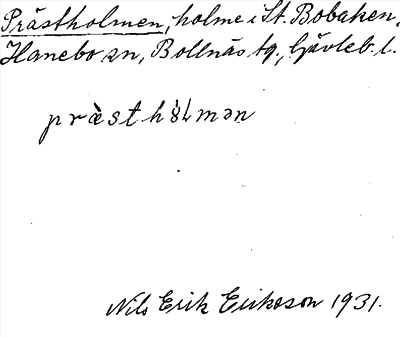 Prästholmen, holme i St. Bobaken,
Hanebo sn, Bollnäs tg., Gävleb. l.
præ̀sthɷ̀lmən
Nils Erik Eriksson 1931.